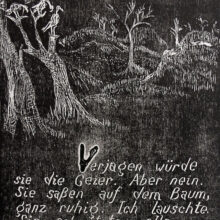 Verjagen würde
sie die Geier. Aber nein.
Sie saßen auf dem Baum,
ganz ruhig. Ich lauschte.